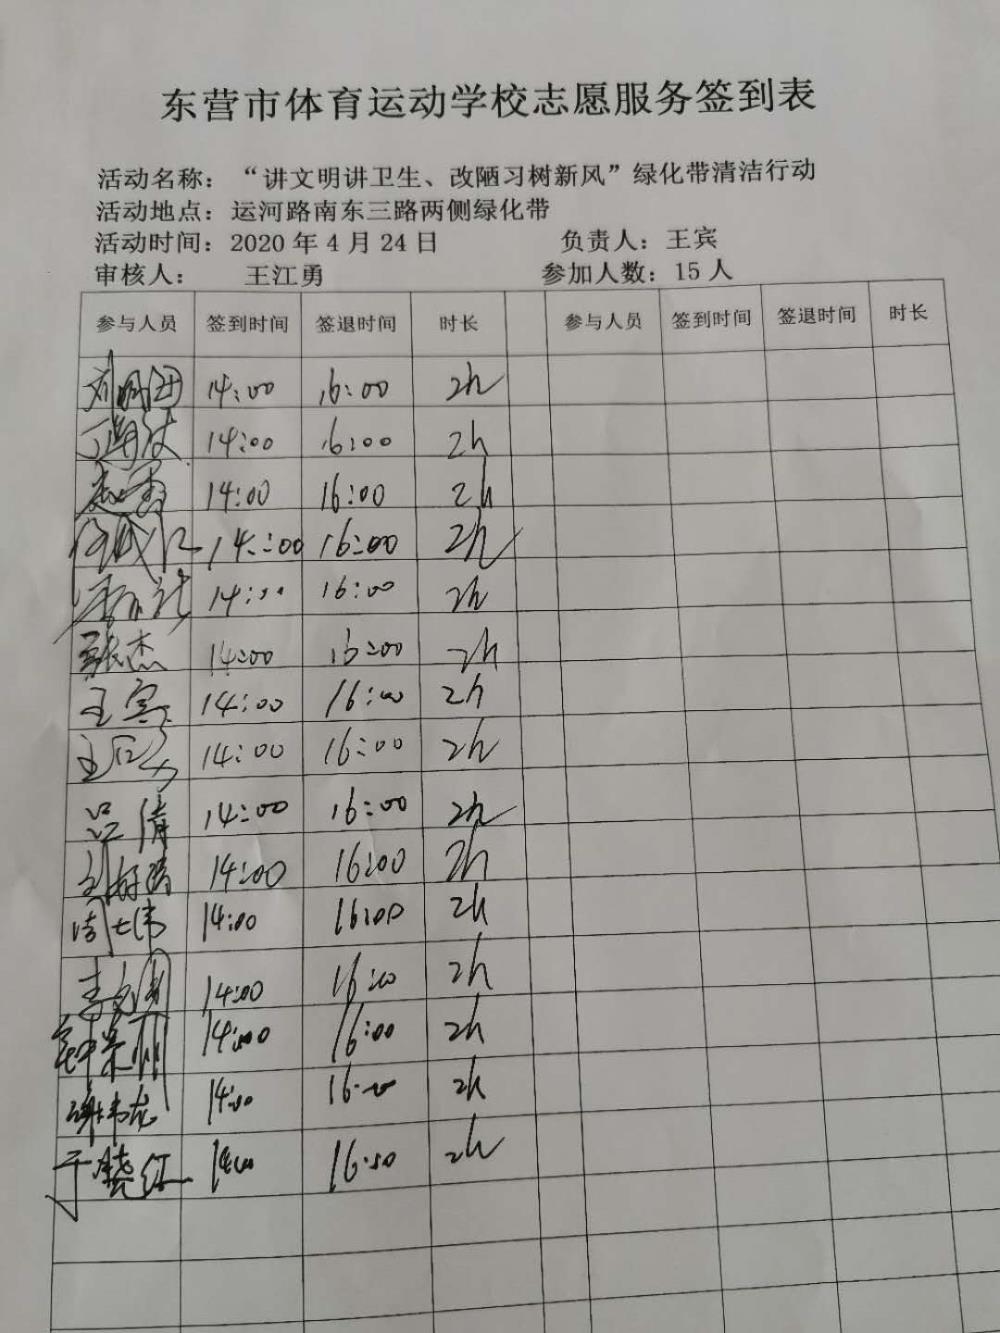 东营市体育运动学校志愿服务签到表
活动名称：“讲文明讲卫生、改陋习树新风”绿化带清洁行动
活动地点：运河路南东三路两侧绿化带
活动时间：2020 年 4 月 24 日 负责人：王宾
审核人： 王江勇 参加人数：15 人
参与人员 签到时间 签退时间 时长 参与人员 签到时间 签退时间 时长
14:00 16:00 2h
14:00 16:00 2h
14:00 16:00 2h
14:00 16:00 2h
14:00 16:00 2h
张杰 14:00 16:00 2h
王宾 14:00 16:00 2h
14:00 16:00 2h
吕倩 14:00 16:00 2h
14:00 16:00 2h
14:00 16:00 2h
14:00 16:00 2h
钟荣丽 14:00 16:00 2h
14:00 16:00 2h
于晓红 14:00 16:00 2h